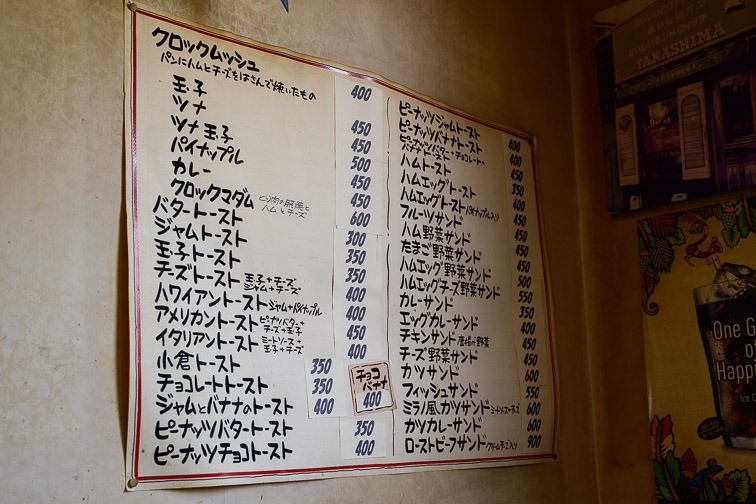 クロックムッシュ
パンにハムとチーズをはさんで焼いたもの 400
玉子
ツナ 450
ツナ玉子 450
パイナップル 500
カレー 450
クロックマダム 450
とり肉の照焼と
ハムとチーズ
バタートースト 600
ジャムトースト 300
玉子トースト 350
チーズトースト 350
玉子+チーズ
ジャム+チーズ
ハワイアントースト ジャム+パイナップル 400
アメリカントースト 400
ピーナツバター+
チーズ+玉子
イタリアントースト 450
ミートソース+
玉子+チーズ
400
小倉トースト 350
チョコレートトースト 350
ジャムとバナナのトースト 400
チョコ
バナナ
400
ピーナッツバタートースト 350
ピーナッツチョコトースト 400
ピーナッツジャムトースト 400
ピーナッツバナナトースト
ピーナッツバター+チョコレート+ 400
ハムトースト 350
ハムエッグトースト 400
ハムエッグトースト パイナップル入り 450
フルーツサンド 450
ハム野菜サンド 450
たまご野菜サンド 450
ハムエッグ野菜サンド 450
ハムエッグチーズ野菜サンド 500
カレーサンド 550
エッグカレーサンド 350
チキンサンド 唐揚の野菜 400
チーズ野菜サンド 450
カツサンド 450
フィッシュサンド 550
ミラノ風カツサンド ミートソース+チーズ 600
カツカレーサンド 600
ローストビーフサンド クリームチーズ入り 900
TAKASHIMA
One G
of
Happ
Ice C